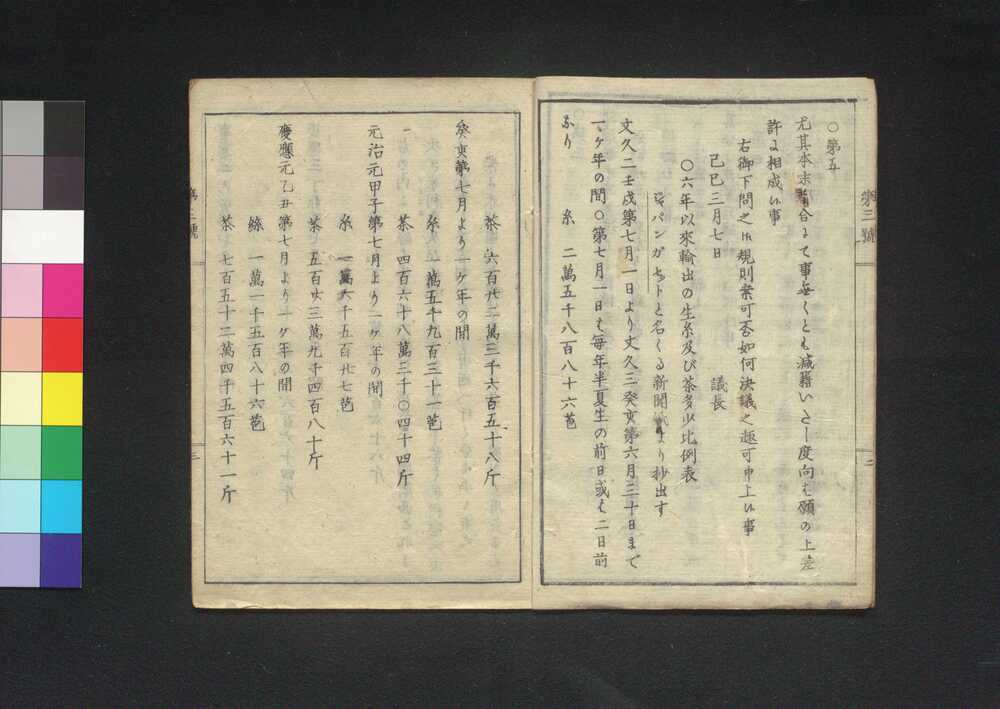 第三號
二
○第五
尤其本末都合ニて事無くとも減籍いたし度向も願の上差
許に相成候事
右御下問之件規則案可否如何決議之趣可申上候事
己巳三月七日 議長
○六年以來輸出の生糸及び茶多少比例表
ジャパンガゼットと名くる新聞紙より抄出す
文久二壬戌第七月一日より文久三癸亥第六月三十日まで
一ヶ年の間○第七月一日は毎年半夏生の前日或は二日前
なり 糸 二萬五千八百八十六苞
茶 六百廿二萬三千六百五十八斤
癸亥第七月より一ヶ年の間
糸 一萬五千九百三十一苞
茶 四百六十八萬三千〇四十四斤
元治元甲子第七月より一ヶ年の間
糸 一萬六千五百廿七苞
茶 五百廿三萬九千四百八十斤
慶應元乙丑第七月より一ヶ年の間
絲 一萬一千五百八十六苞
茶 七百五十二萬四千五百六十一斤
第三號
三